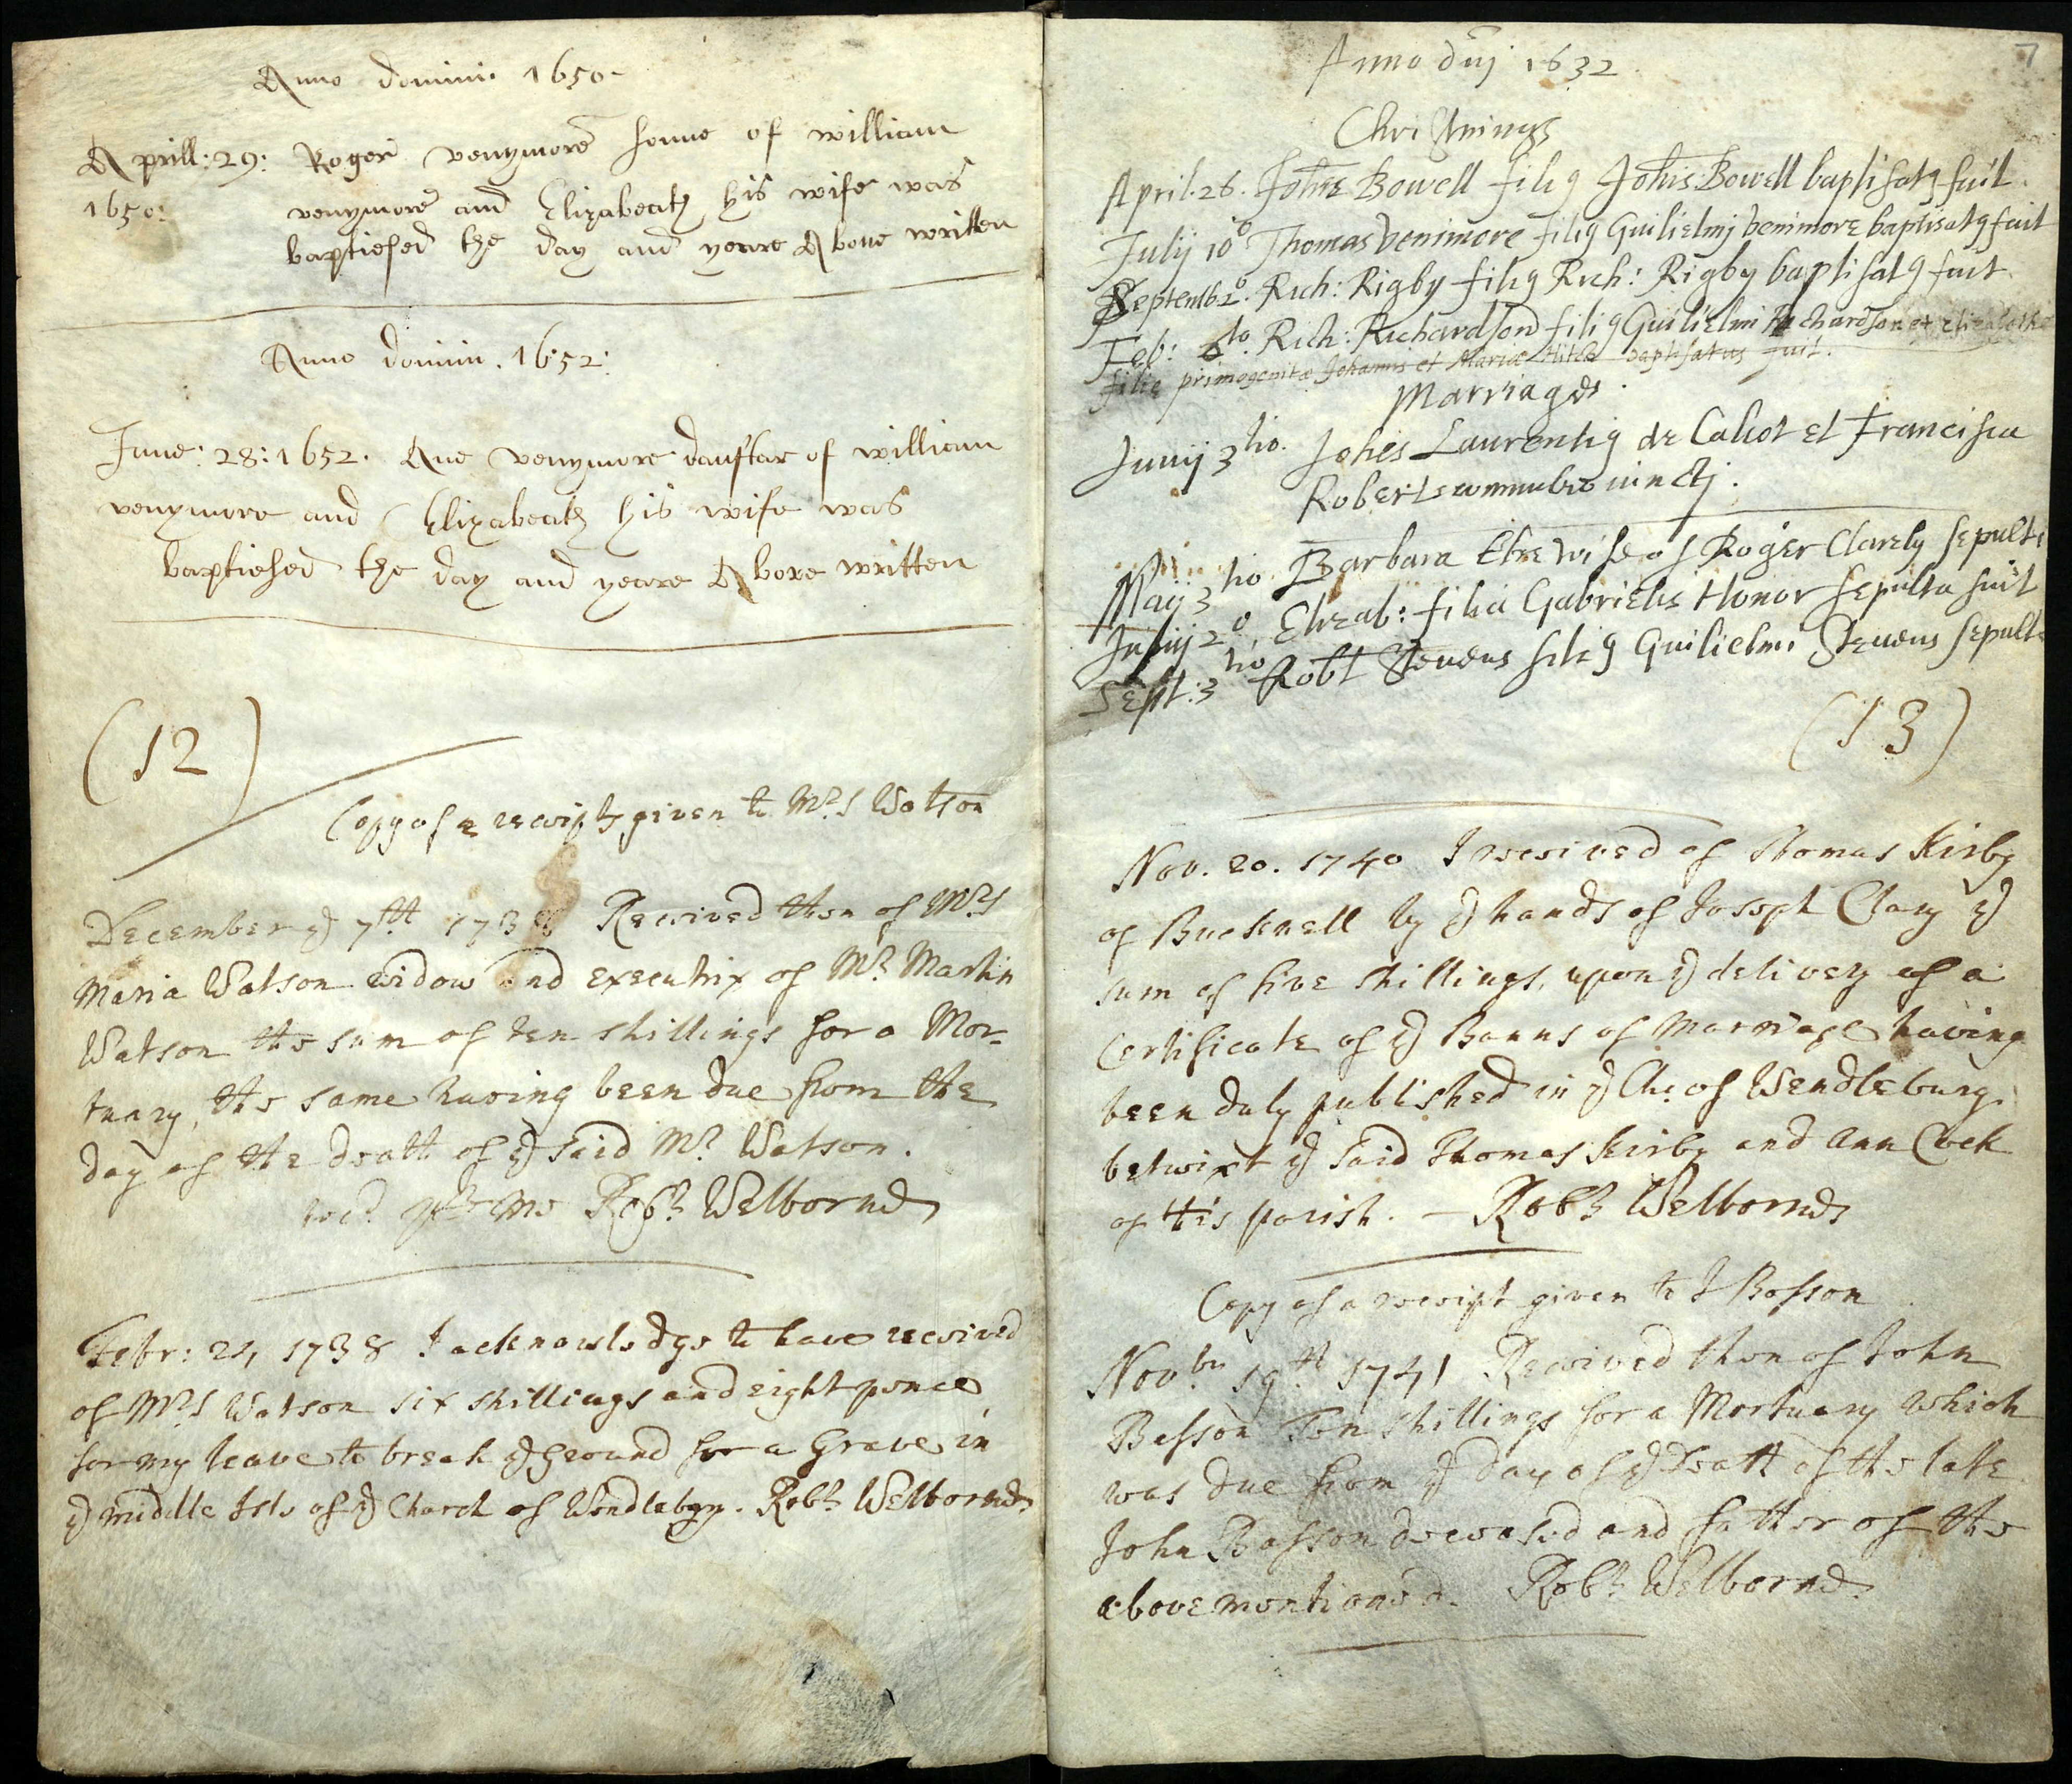 Anno domini 1650
Aprill: 29: Roger venymore sonne of william
1650: venymore and Elizabeath his wife was
baptiesed the day and yeare Above written
Anno domini. 1652:
June: 28: 1652. Ane venymore dauftar of william
venymore and Elizabeath his wife was
baptiesed the day and yeare Above written
(12)
Copy of a receipt given to Mrs Watson
December ye 7th 1738 Received then of Mrs
Maria Watson widow and executrix of Mr Martin
Watson the sum of ten shillings for a Mor-
tuary, the same having been due from the
day of the death of ye said Mr Watson.
recd by me Robt Welbornd
Febr: 21, 1738 I acknowledge to have received
of Mrs Watson six shillings and eight pence
for my leave to break ye ground for a Grave in
ye middle Isle of ye Church of Wendlebry. Robt Welbornd
7
Anno dni 1632
Christnings
April. 26. Johne Bowell filiꝯ Johis Bowell baptisatꝯ fuit.
Julij 10o Thomas Venimore filiꝯ Guilielmj Venimore baptisatꝯ fuit
Septemb 2o. Rich: Rigby filiꝯ Rich: Rigby baptisatꝯ fuit
Feb: 6to. Rich: Richardson filiꝯ Guilielmi Richardson et Elizabethæ
filiæ primogenitæ Johannis et Mariæ baptisatus fuit.
Marriages
Junij 3tio. Johes Laurentiꝯ de Calcot et Francisca
Roberts connubio iunctj.
Maij 3tio Barbara the wife of Roger Clarely sepulta
Julij 2o, Elizab: filia Gabrielis Honor sepulta fuit
Sept: 3tio Robt Stevens filiꝯ Guilielmi Stevens sepult
(13)
Nov. 20. 1740 I received of Thomas Kirby
of Bucknell by ye hands of Joseph Clary ye
sum of five shillings, upon ye delivery of a
Certificate of ye Banns of Marriage having
been duly published in ye Ch: of Wendlebury
betwixt ye said Thomas Kirby and Ann Cock
of this parish. — Robt Welbornd
Copy of a receipt given to J Basson
Novbr 19th 1741 Received then of John
Basson Ten shillings for a Mortuary which
was due from ye day of ye Death of the late
John Basson deceased and father of the
above mentioned. Robt Welbornd